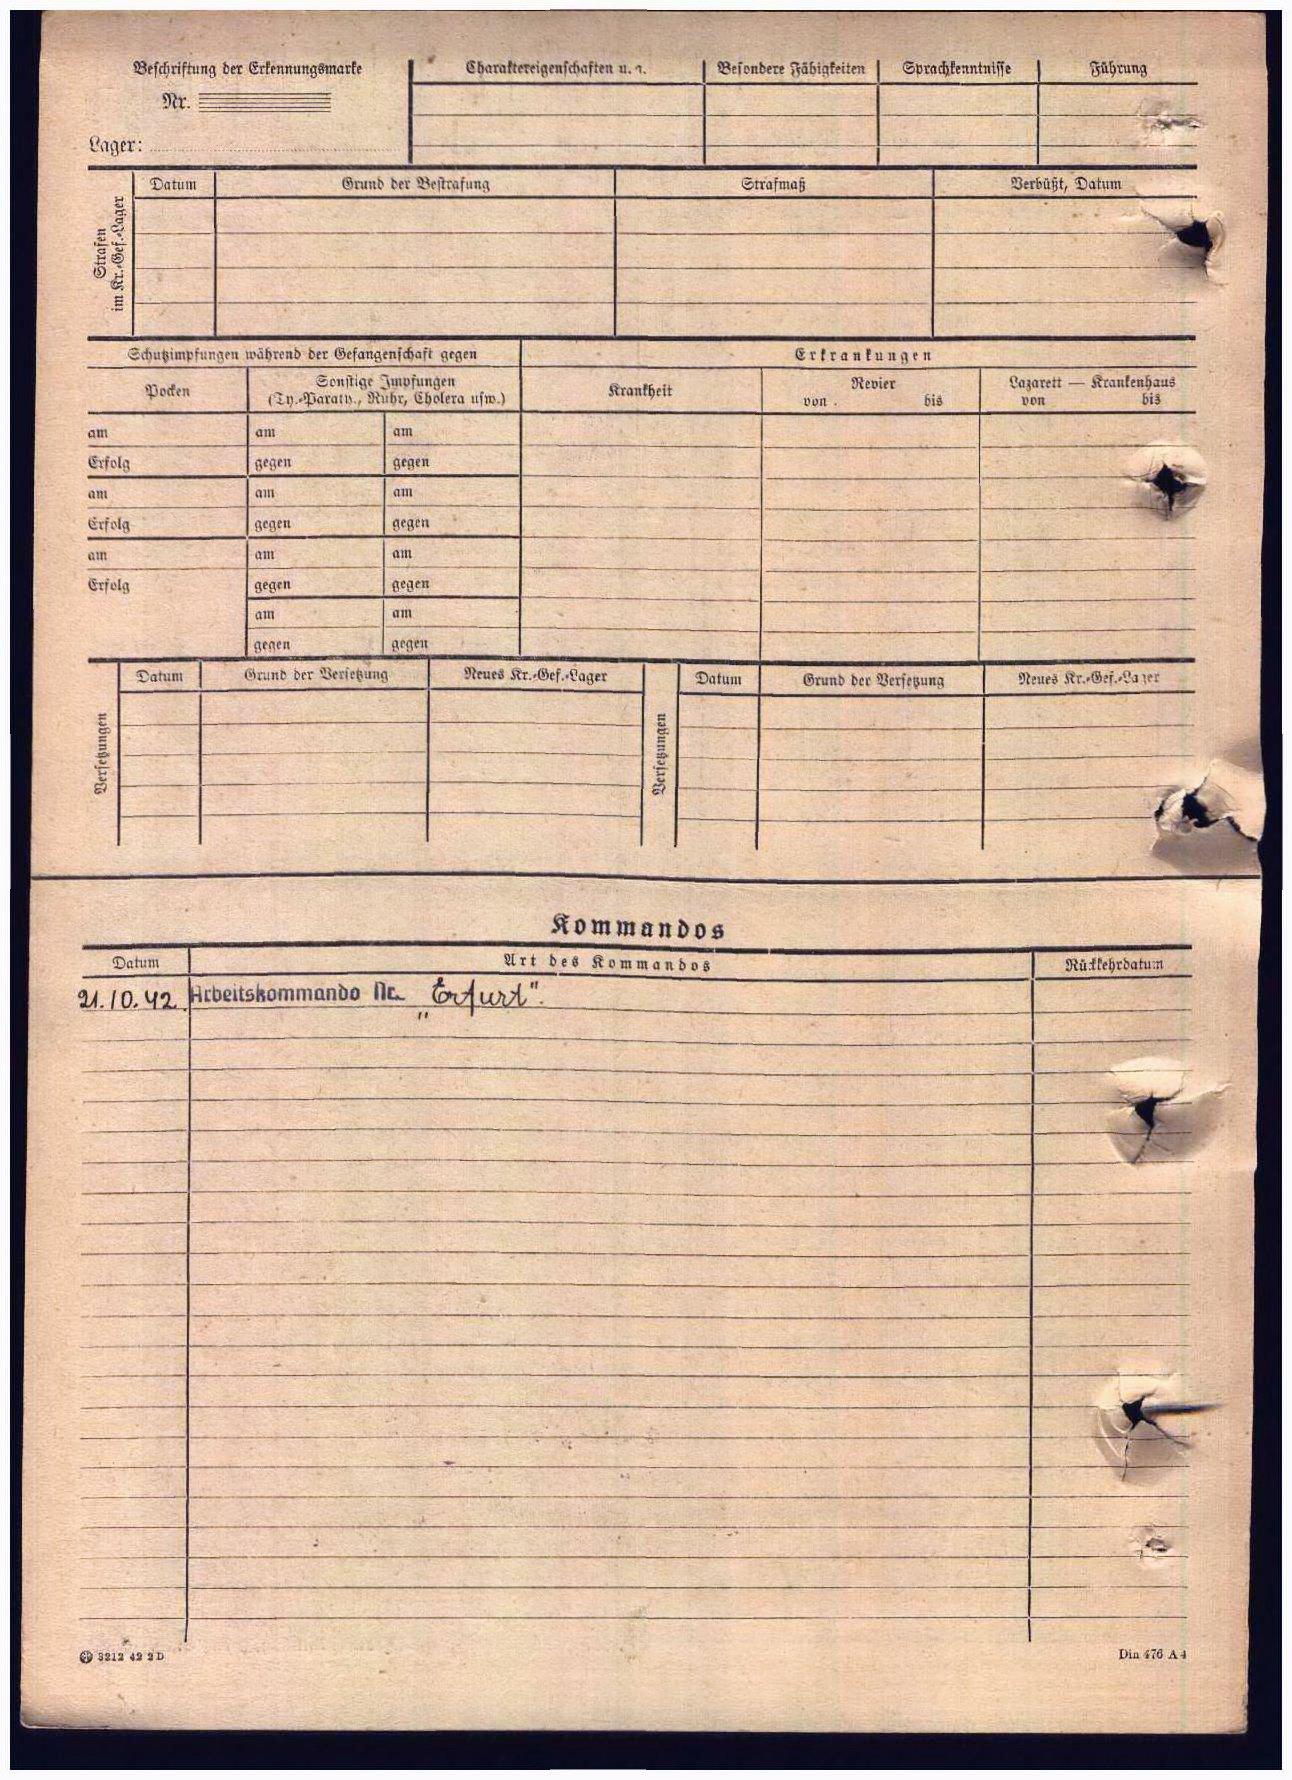 Beschriftung der Erkennungsmarke
Nr.
Lager:
Charaktereigenschaften u. a.
Besondere Fähigkeiten
Sprachkenntnisse
Führung
Strafen
im Kr.-Gef.-Lager
Datum
Grund der Bestrafung
Strafmaß
Verbüßt, Datum
Schutzimpfungen während der Gefangenschaft gegen
Erkrankungen
Pocken
Sonstige Impfungen
(Ty.-Paraty., Ruhr, Cholera usw.)
Krankheit
Revier
von bis
Lazarett — Krankenhaus
von bis
am am am
Erfolg gegen gegen
am am am
Erfolg gegen gegen
am am am
Erfolg gegen gegen
am am
gegen gegen
Versetzungen
Datum
Grund der Versetzung
Neues Kr.-Gef.-Lager
Versetzungen
Datum
Grund der Versetzung
Neues Kr.-Gef.-Lager
Kommandos
Datum
Art des Kommandos
Rückkehrdatum
21.10.42. Arbeitskommando Nr. „Erfurt".
3212 42 2 D
Din 476 A 4